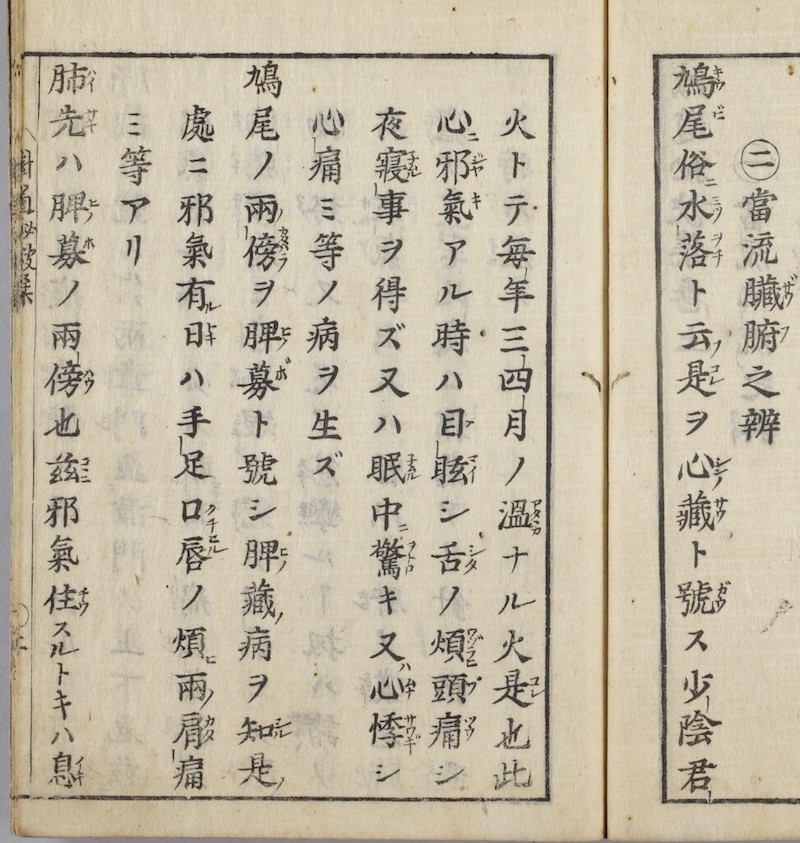 ㊁當流臟腑之辨
鳩尾俗ニ水落ト云是ヲ心藏ト號ス少陰君
火トテ毎年三四月ノ溫ナル火是也此
心ニ邪氣アル時ハ目眩シ舌ノ煩頭痛シ
夜寢事ヲ得ズ又ハ眠中ニ驚キ又ハ心悸シ
心痛ミ等ノ病ヲ生ズ
鳩尾ノ兩ノ傍ヲ脾募ト號シ脾藏ノ病ヲ知是ノ
處ニ邪氣有ル日ハ手足口唇ノ煩ヒ兩ノ肩痛
ミ等アリ
肺先ハ脾募ノ兩傍也茲ニ邪氣住スルトキハ息